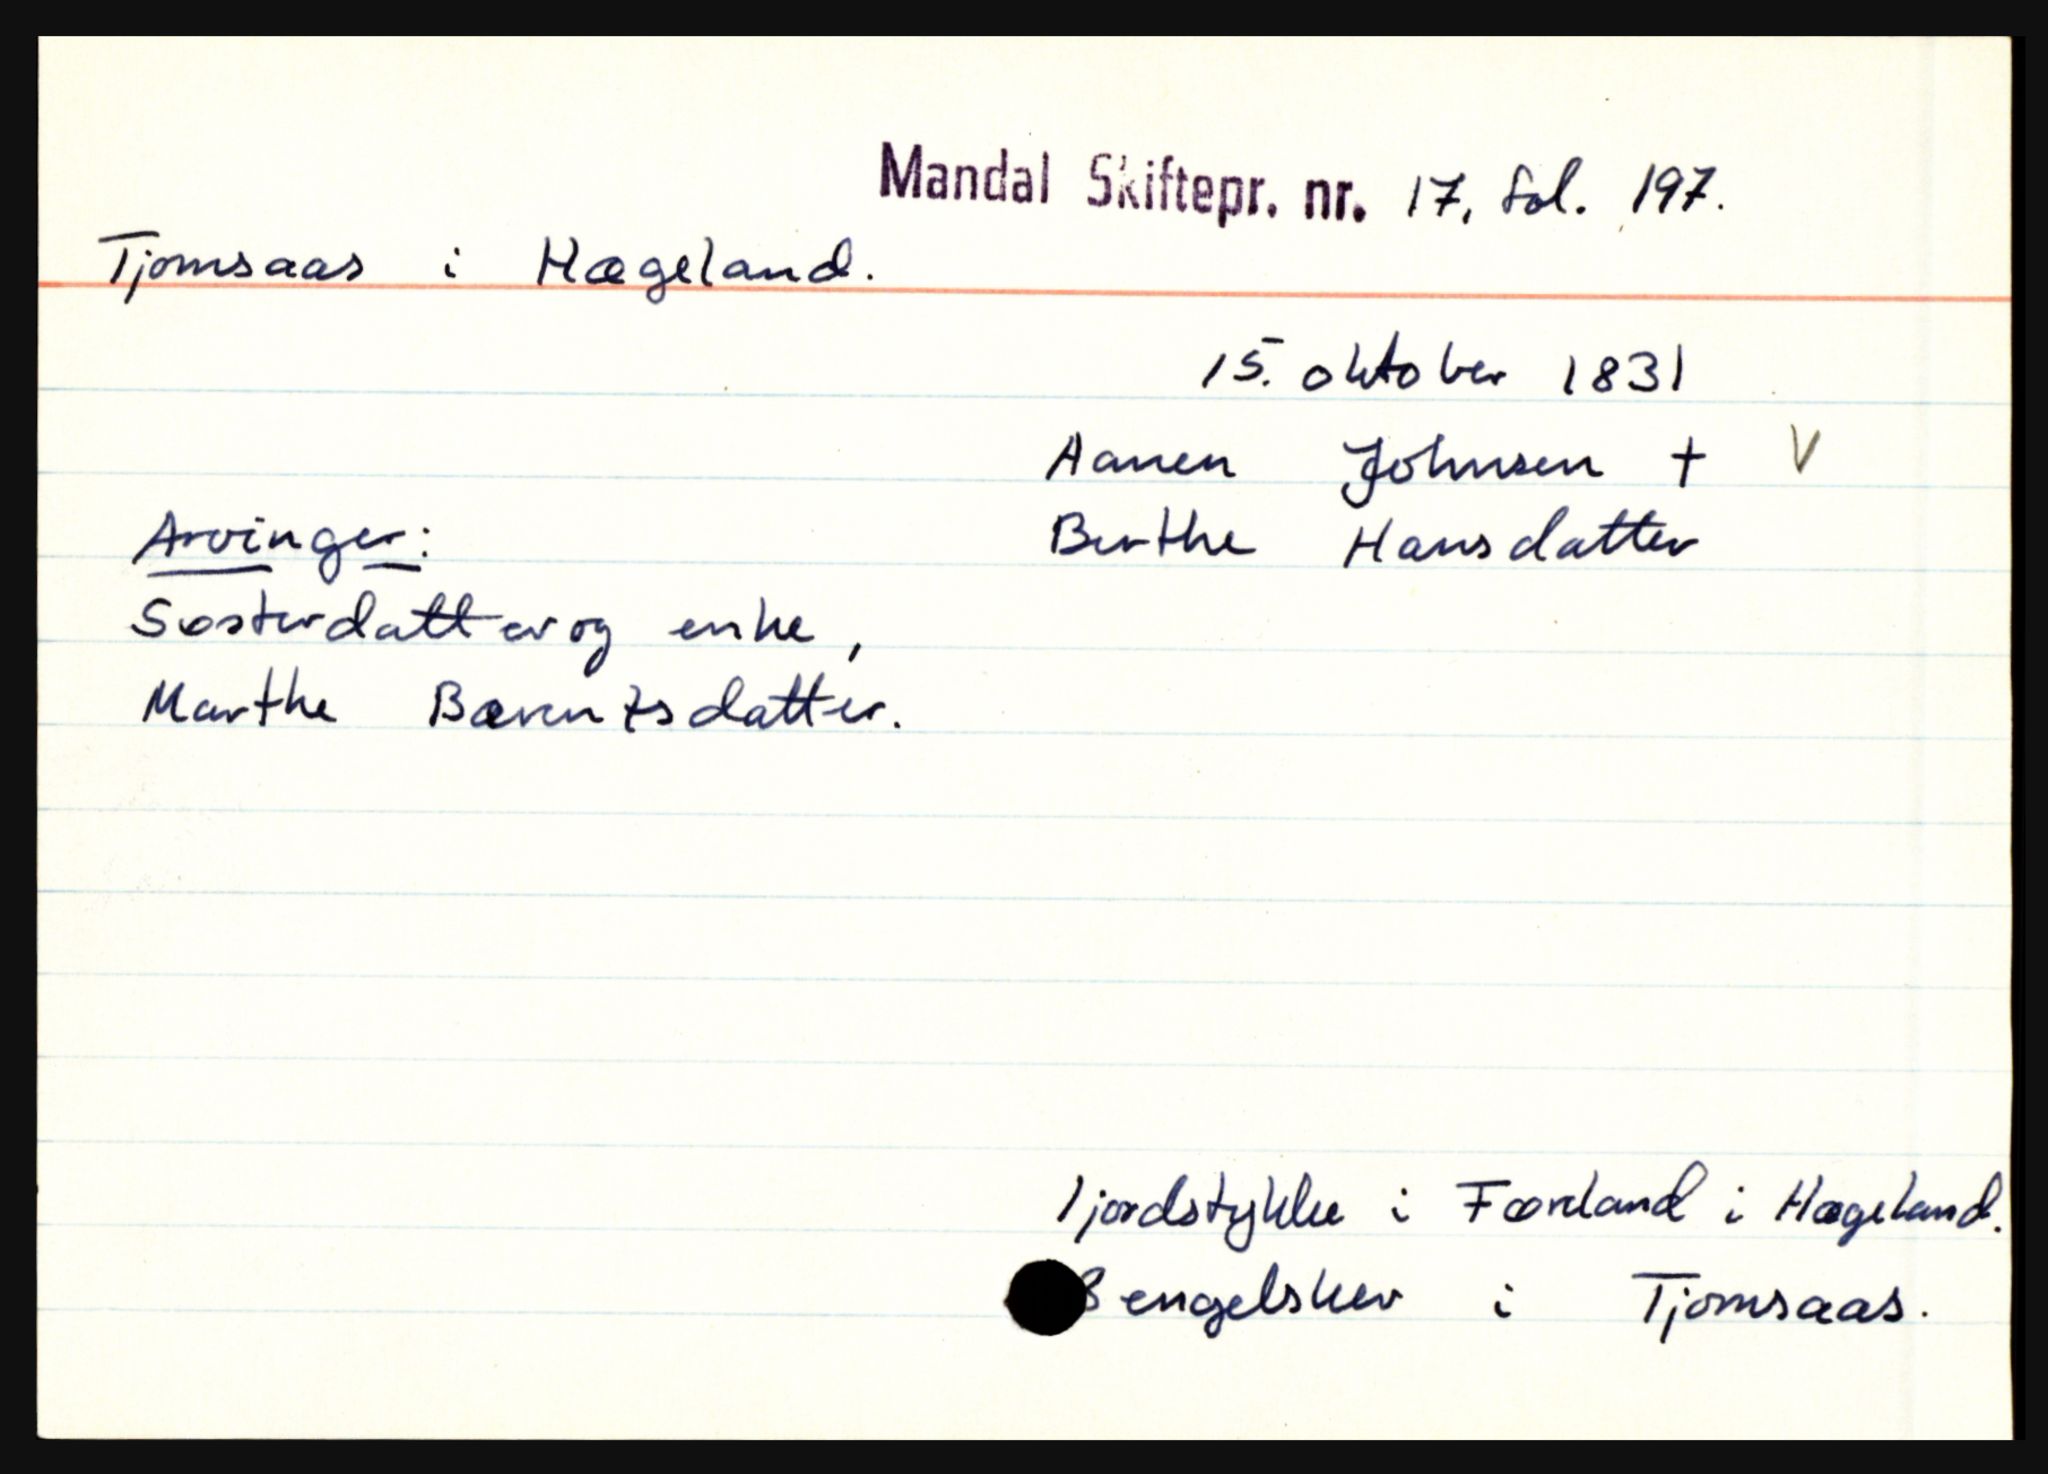 Mandal Skiftepr. nr. 17, fol. 197.
Tjomsaas i Hægeland.
15. oktober 1831
Aanen Johnsen + V
Berthe Hansdatter
Arvinger:
Søsterdatter og enke,
Marthe Bærentsdatter.
1 jordstykke i Færeland i Hægeland.
3 engelsker i Tjomsaas.